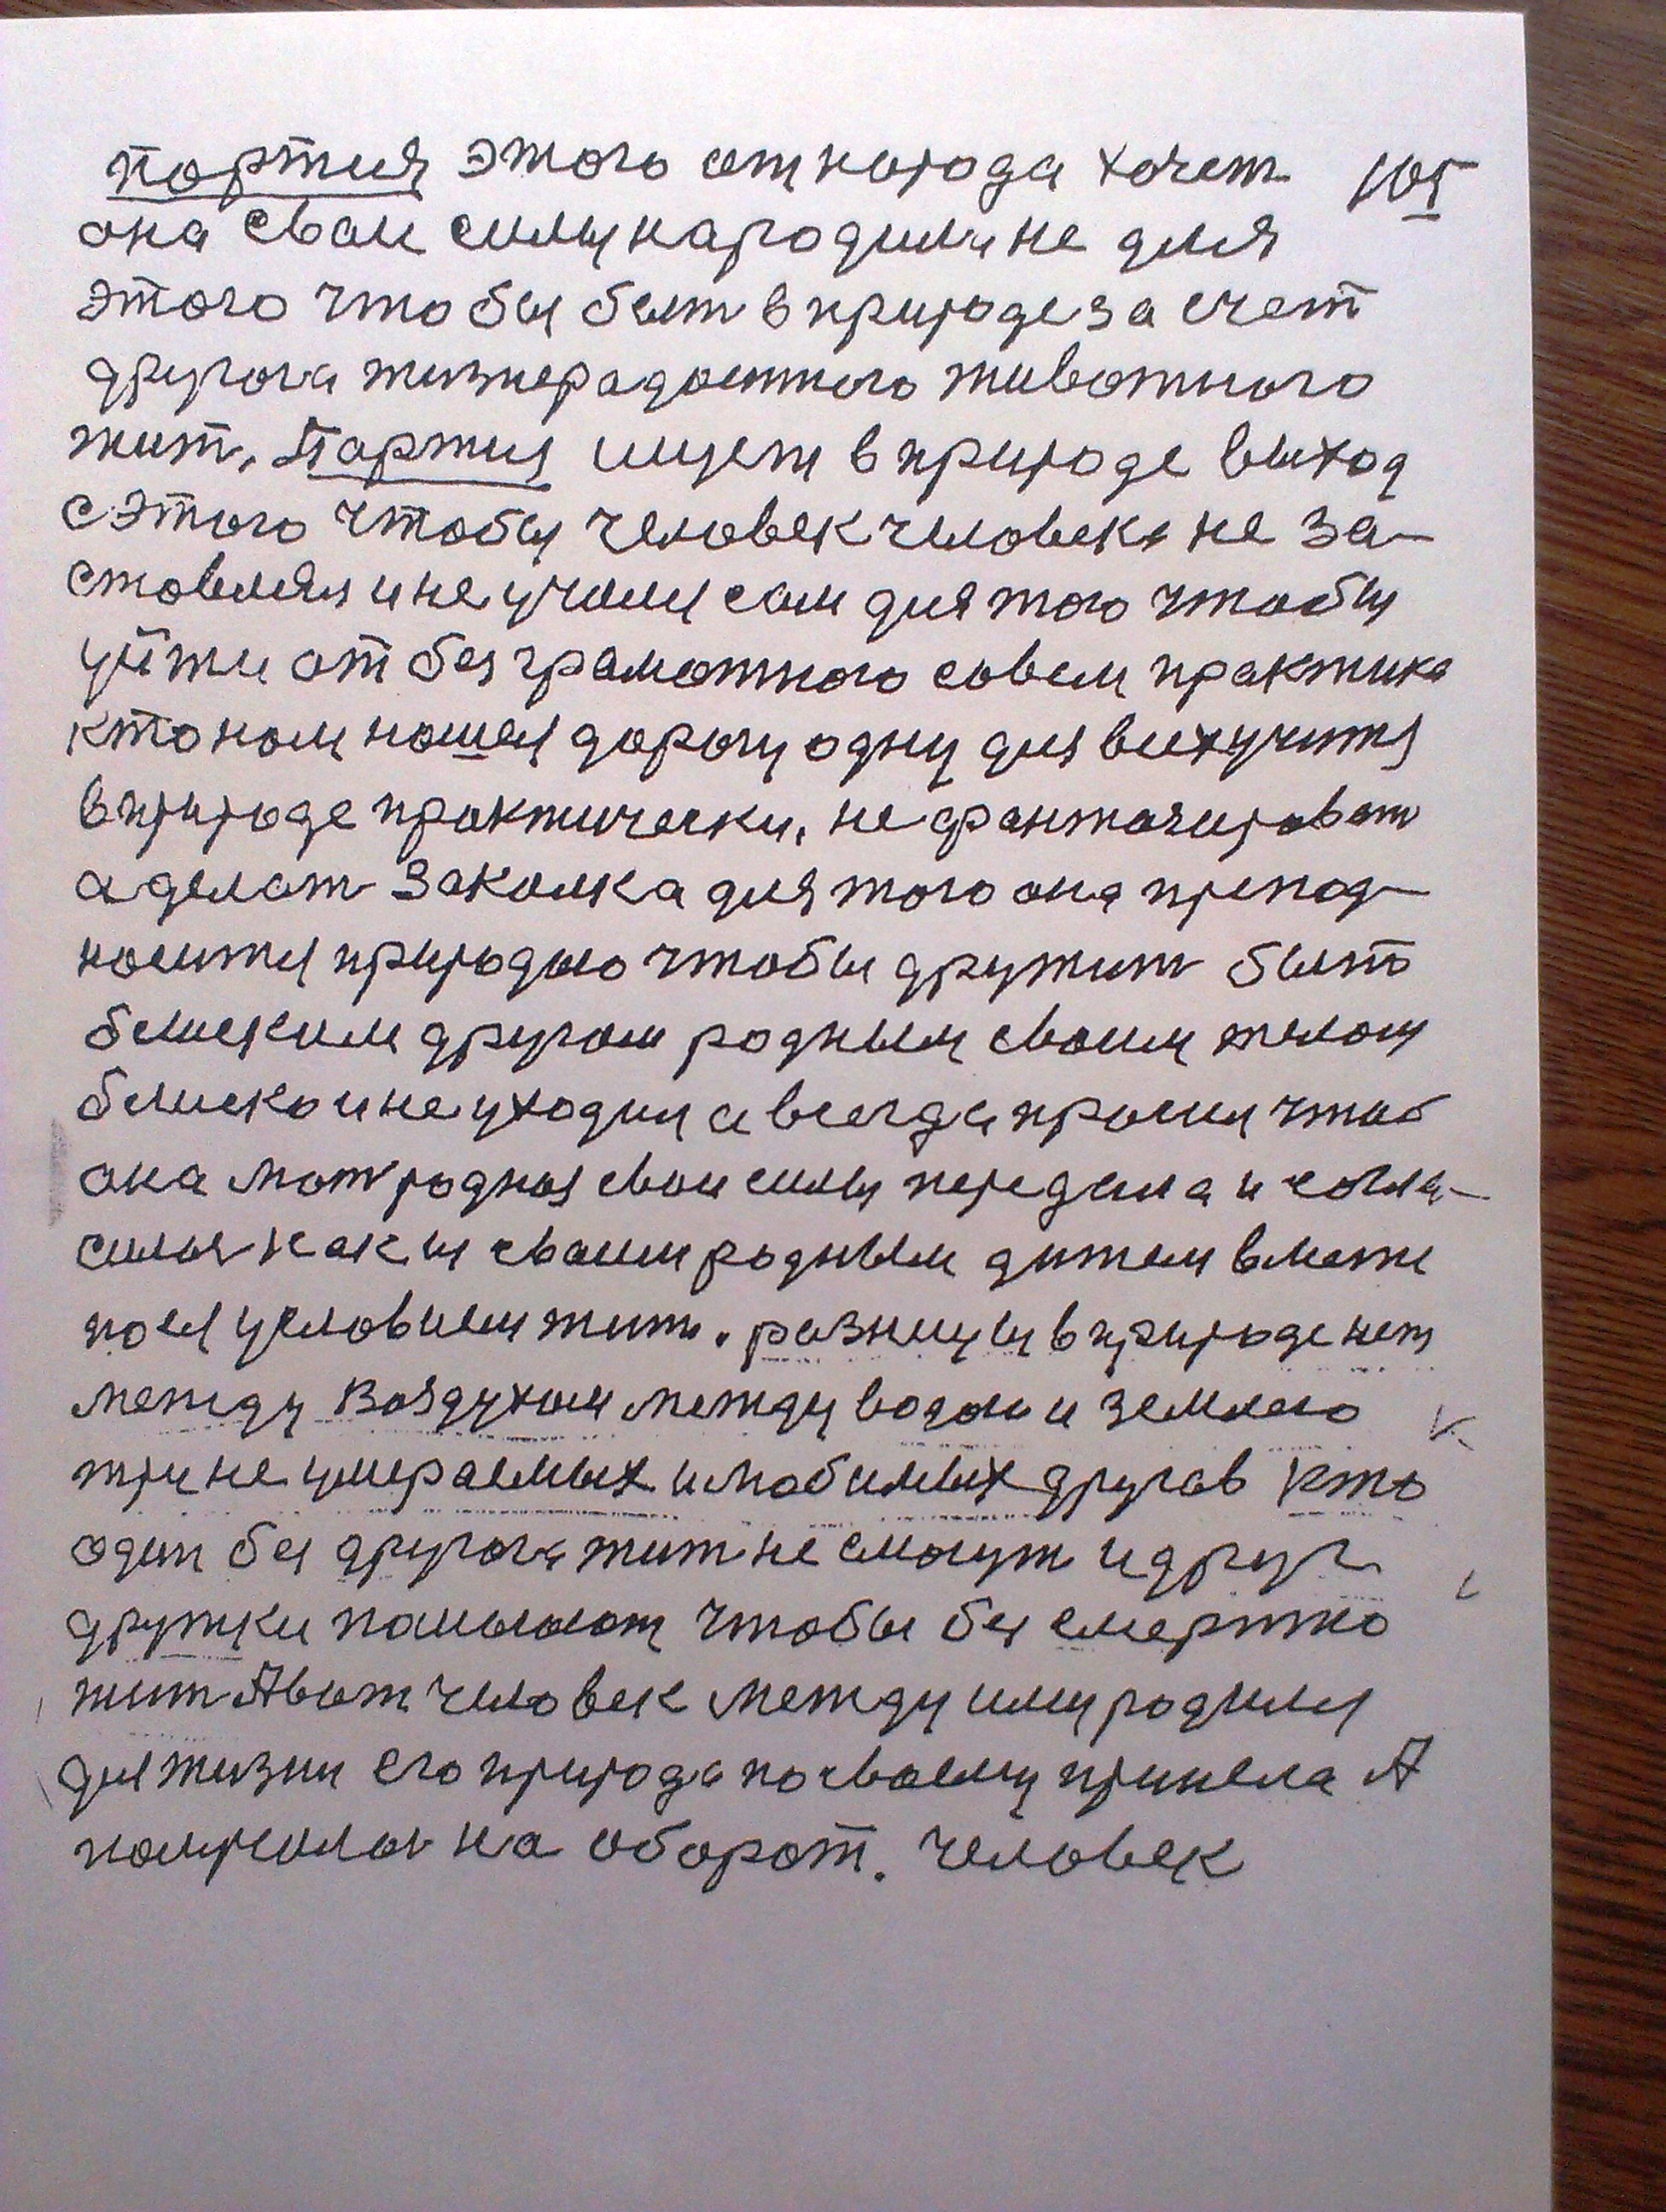 партия этого от народа хочет 105
она сваи силы народила не для
этого что бы быт в природе за счет
другога жизнерадостного животного
жит. Партия ищет в природе выход
с этого чтобы человек человека не за-
ставлял и не учился сам для того чтобы
уйти от без грамотного совсем практика
кто нам нашел дорогу одну для
в природе практически, не фантазироват
а делат Закалка для того она препод-
носится природаю чтобы дружит быть
блиским другом родным своим телом
блиско и не уходил а всегда просил чтоб
она мат родная сваи силы передала и согла-
силась как и сваим родным дитем вместе
по условием жит. разницы в природе нет
между Воздухом между водаю и землею
три не умираемых и любимых другав Кто
один без другога жит не смогут и друг
дружки памагают чтобы без смертно
жит А вот человек между ими родился
для жизни его природа по сваему приняла А
на оборот. Человек